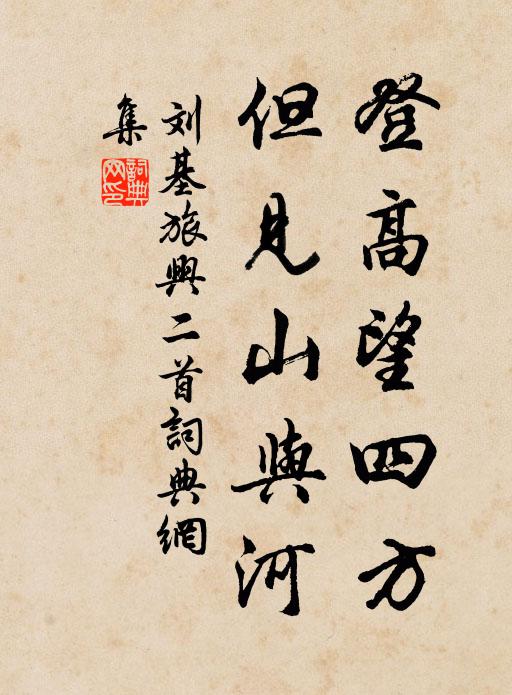 登高望四方
但見山與河
刘基旅興二首詞典網
集
詞典网印